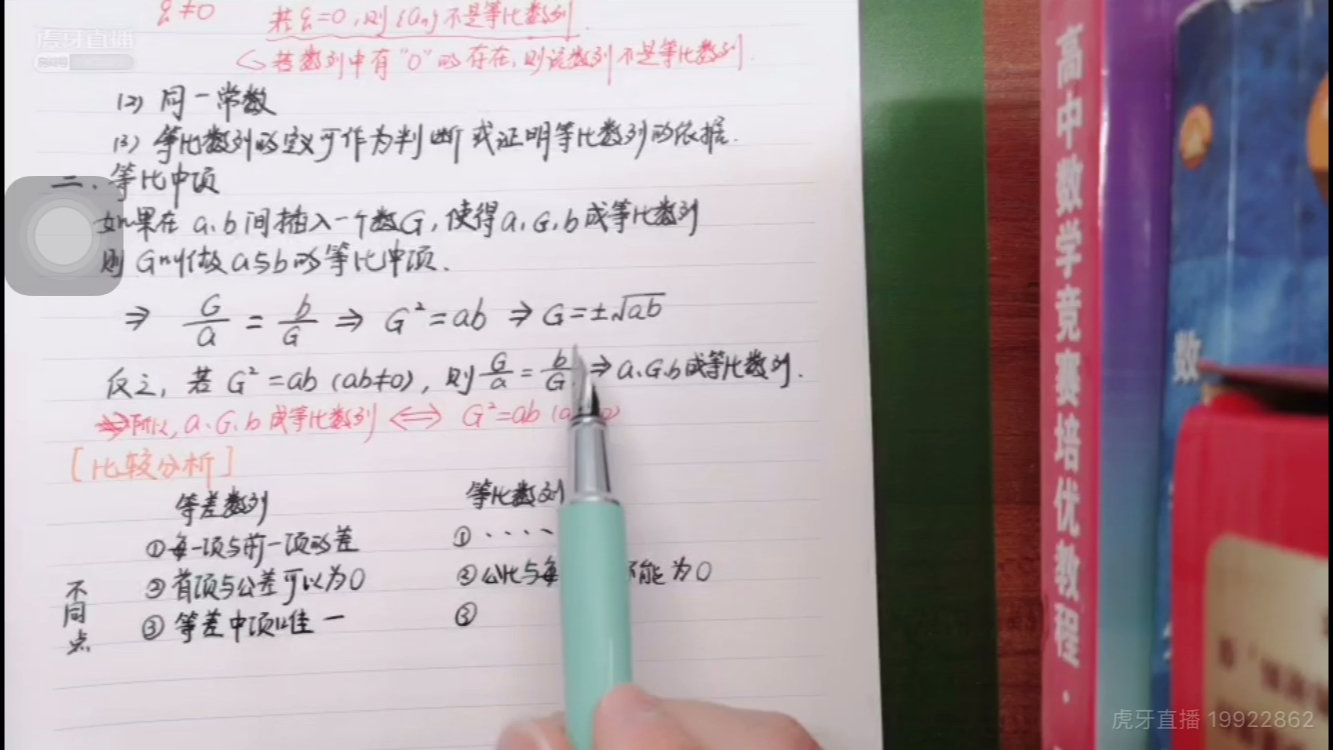 虎牙直播
q≠0 若q=0,则{an}不是等比数列.
若数列中有"0"的存在,则该数列不是等比数列.
(2) 同一常数
(3) 等比数列的定义可作为判断或证明等比数列的依据.
二、等比中项
如果在 a、b间插入一个数G,使得a、G、b成等比数列
则 G叫做a与b的等比中项.
⇒ G/a = b/G ⇒ G²=ab ⇒ G=±√ab
反之,若 G²=ab (ab≠0),则 G/a = b/G ⇒ a、G、b成等比数列.
所以,a、G、b成等比数列 ⟺ G²=ab
[比较分析]
等差数列 等比数列
①每一项与前一项的差 ①····
不同点 ②首项与公差可以为0 ②公比与每 不能为0
③等差中项唯一 ③
高中数学竞赛培优教程·
数
虎牙直播 19922862